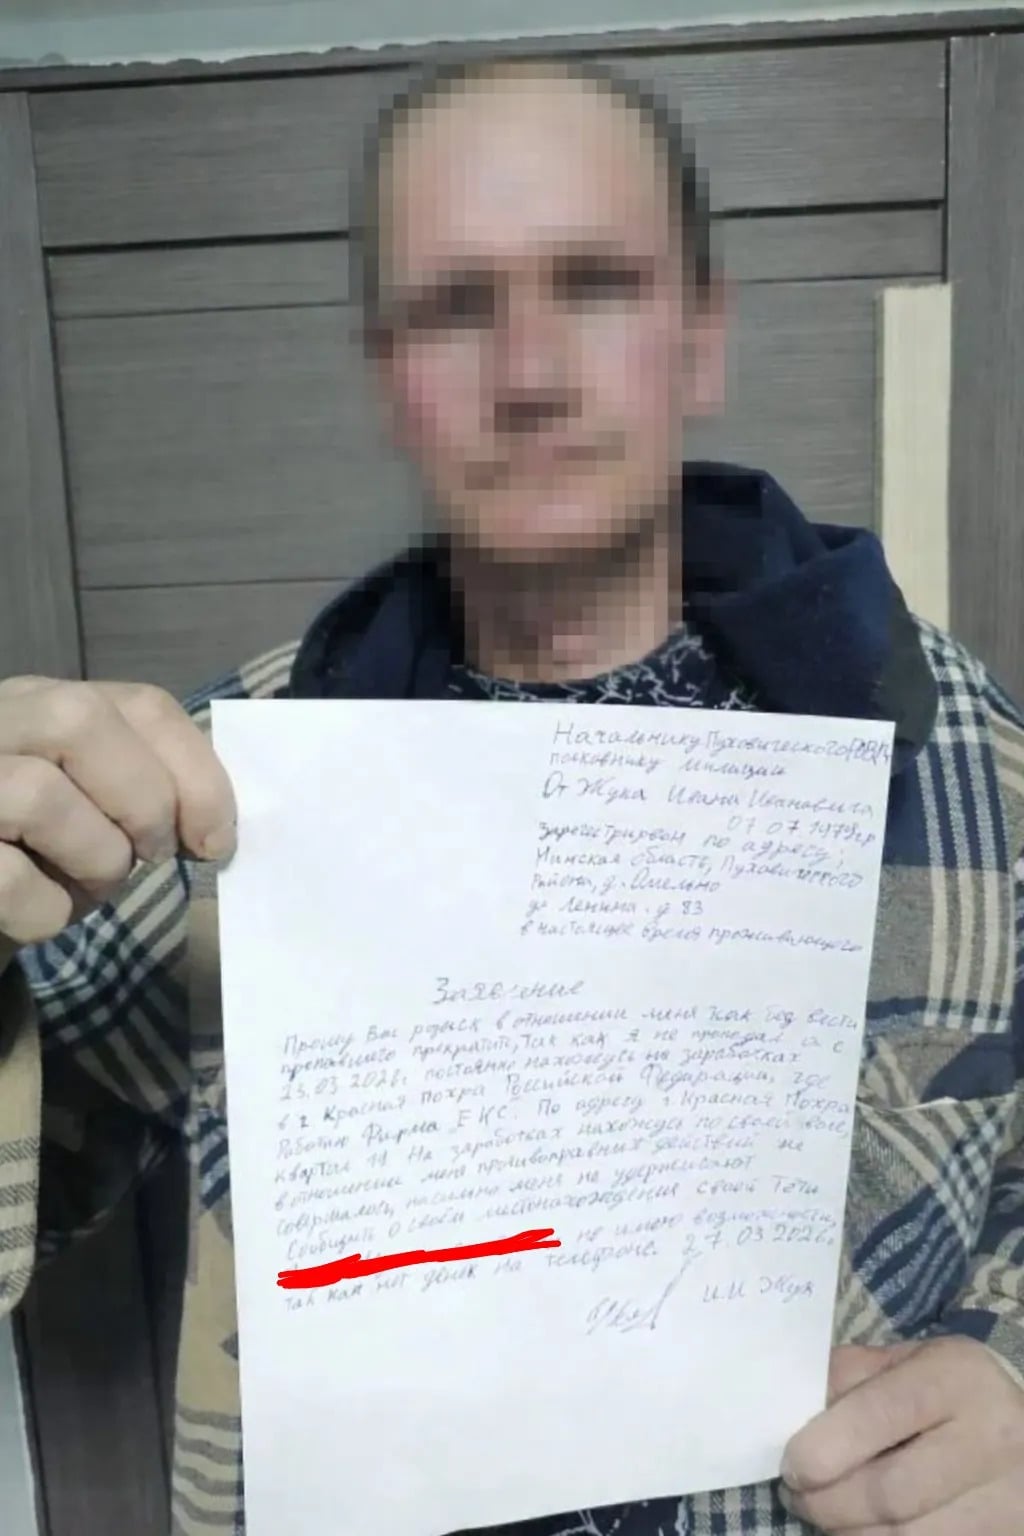 Начальнику Пуховического РОВД
полковнику милиции
От Жука Ивана Ивановича
07.07.1979гр
Зарегестрирован по адресу;
Минская область, Пуховического
района, д. Омельно
ул Ленина. д 83
в настоящее время проживающего
Заявление
Прошу Вас розыск в отношении меня как без вести
пропавшего прекратить, так как я не пропадал а с
23.03.2026г постоянно нахожусь на заработках
в г Красная Похра Российской Федерации, где
Работаю Фирма ЕКС. По адресу г. Красная Похра
Квартал 11 На заработках нахожусь по своей воле,
в отношении меня противоправных действий не
совершалось, насильно меня не удерживают
Сообщить о своём местонахождении своей Тёти
не имею возможности,
так как нет денег на телефоне. 27.03.2026г.
И.И Жук